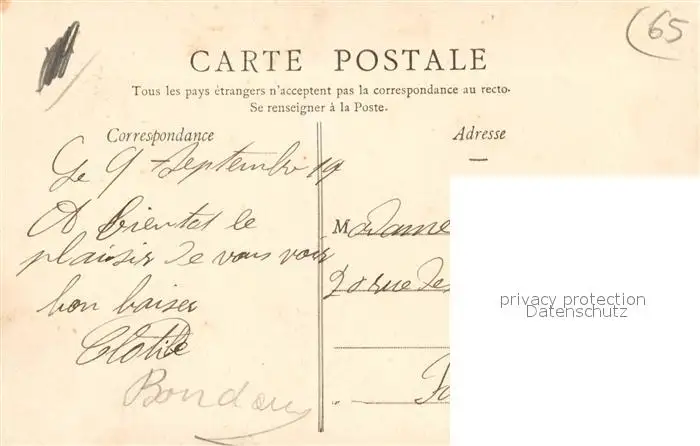 65
CARTE POSTALE
Tous les pays étrangers n'acceptent pas la correspondance au recto-
Se renseigner à la Poste.
Correspondance
Le 9 Septembre 19
A bientot le
plaisir de vous voir
bon baiser
Clotilde
Adresse
Madame
20 rue des
privacy protection
Datenschutz